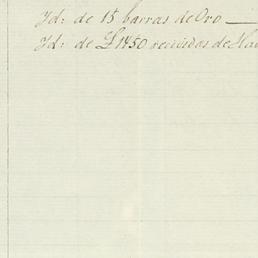 Id: de 15 barras de Oro
Id: de £1450 recividas de